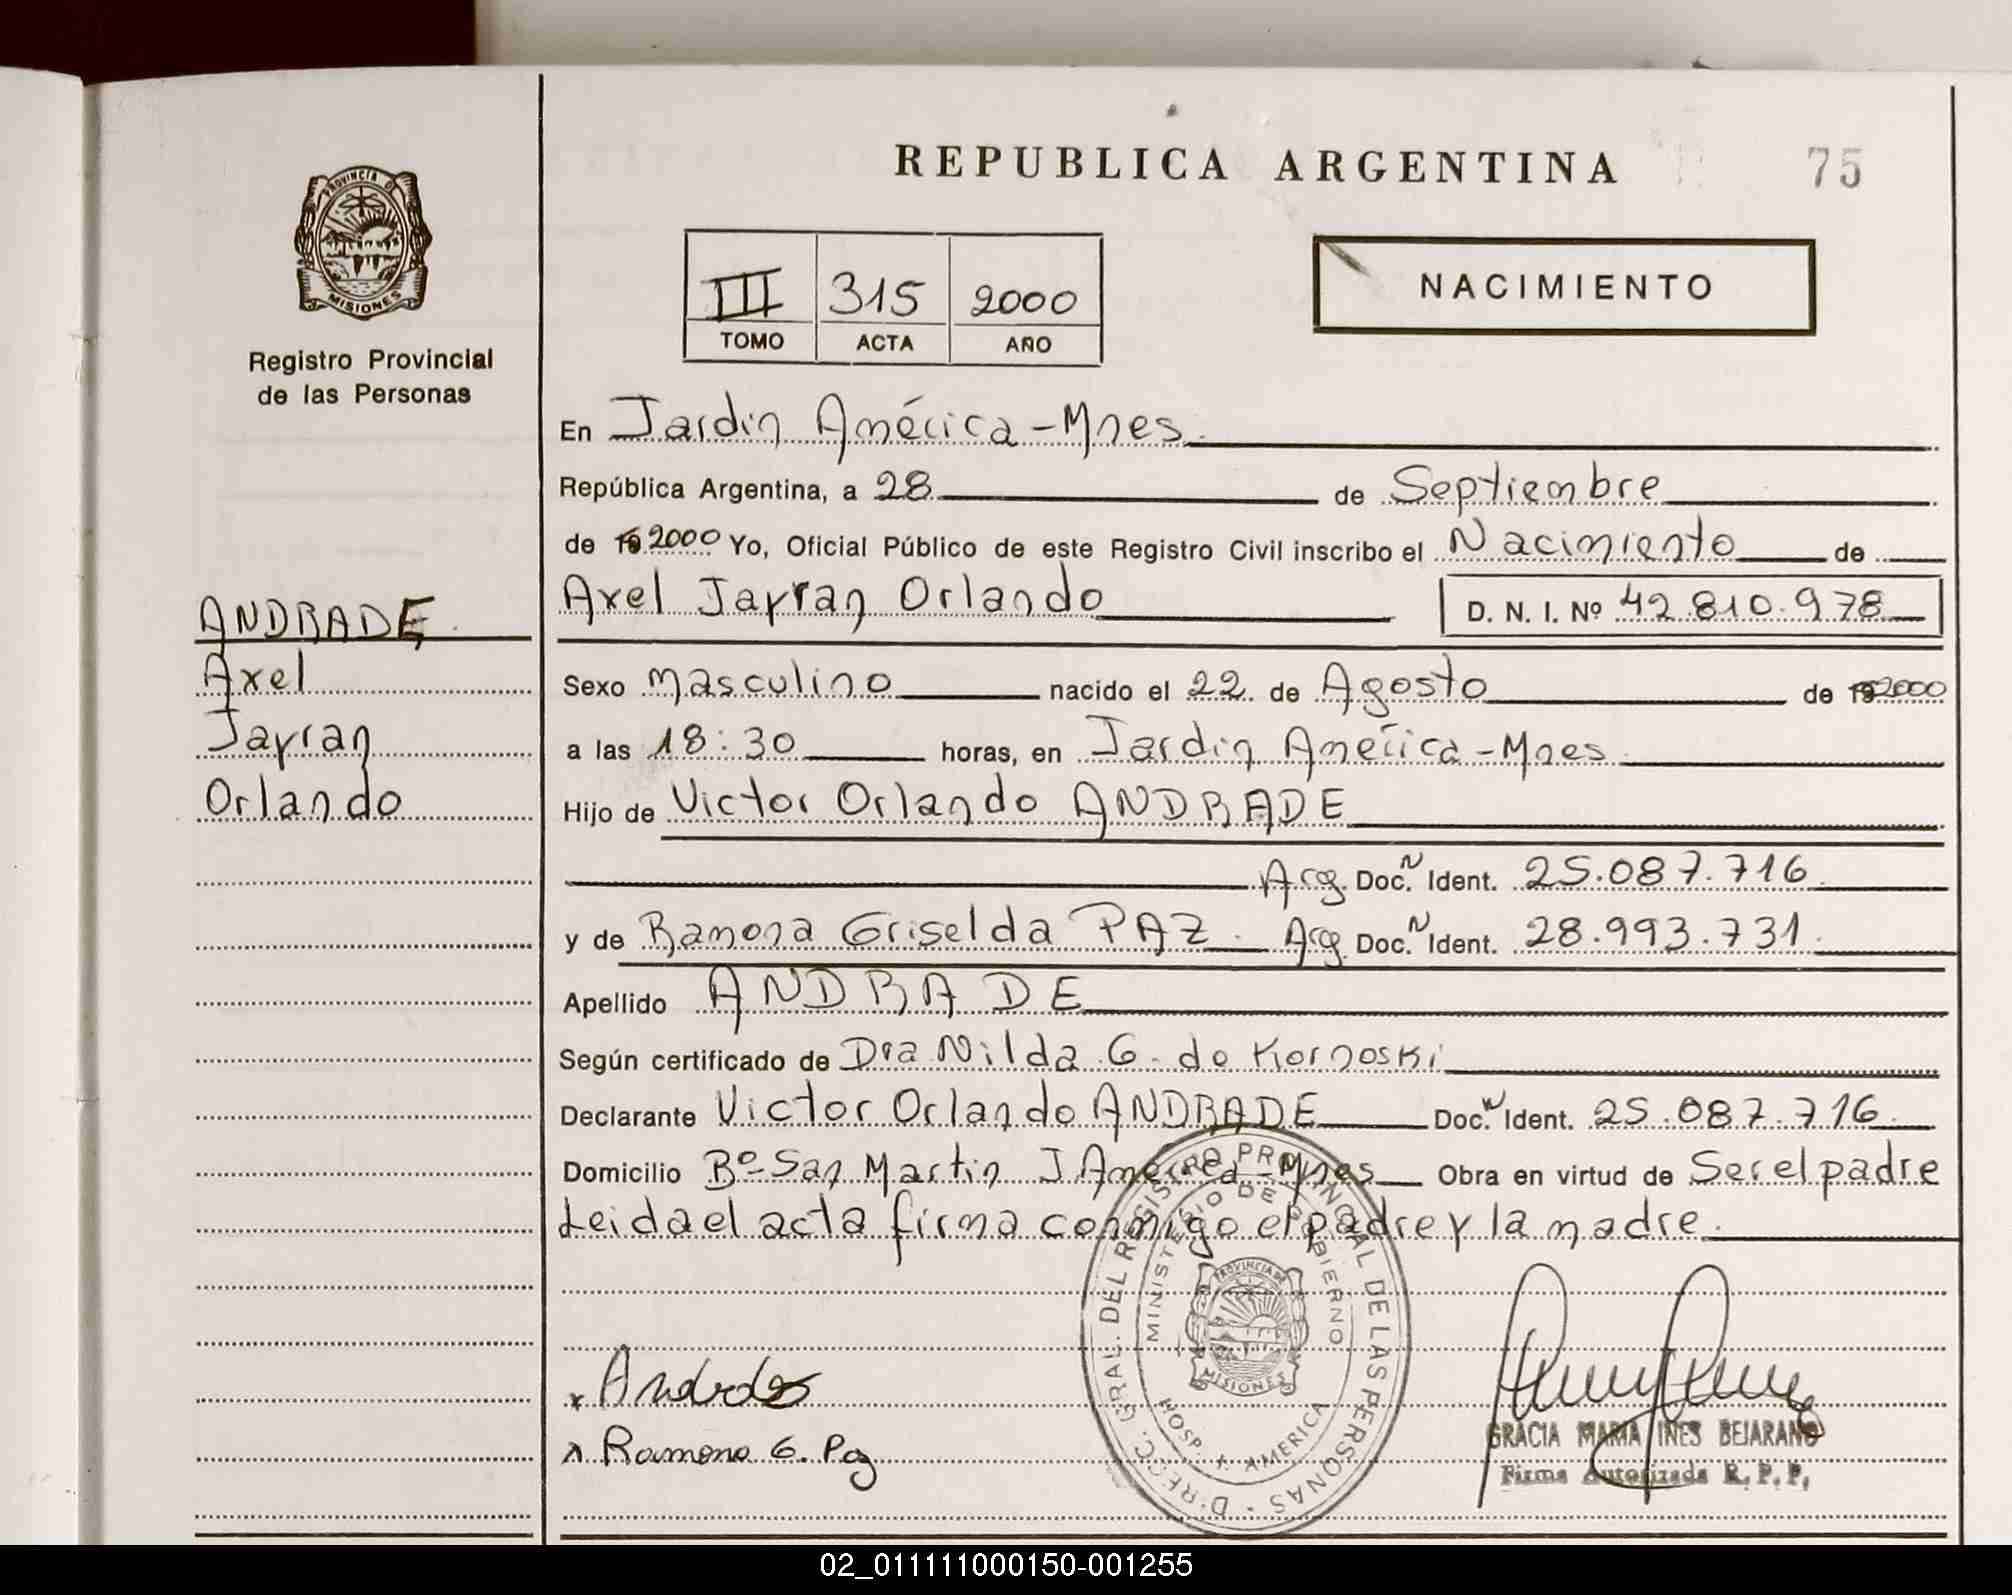 REPUBLICA ARGENTINA
75
PROVINCIA DE
MISIONES
Registro Provincial
de las Personas
III 315 2000
TOMO ACTA AÑO
NACIMIENTO
En Jardin América - Mnes.
República Argentina, a 28 de Septiembre
de 19 2000 Yo, Oficial Público de este Registro Civil inscribo el Nacimiento de
Axel Jayran Orlando D. N. I. Nº 42.810.978
ANDRADE
Axel
Jayran
Orlando
Sexo masculino nacido el 22 de Agosto de 19 2000
a las 18:30 horas, en Jardin América - Mnes.
Hijo de Victor Orlando ANDRADE
Arg. Doc. N Ident. 25.087.716
y de Ramona Griselda PAZ. Arg. Doc. N Ident. 28.993.731.
Apellido ANDRADE
Según certificado de Dra Nilda G. de Kornoski
Declarante Victor Orlando ANDRADE Doc. N Ident. 25.087.716.
Domicilio Bº San Martin J. América - Mnes Obra en virtud de Ser el padre
Leida el acta firma conmigo el padre y la madre.
DIRECC. GRAL. DEL REGISTRO PROVINCIAL DE LAS PERSONAS
MINISTERIO DE GOBIERNO
PROVINCIA DE
MISIONES
HOSP. J. AMERICA
x Andrade
x Ramona G. Paz
GRACIA MARIA INES BEJARANO
Firma Autorizada R. P. P.
02_011111000150-001255